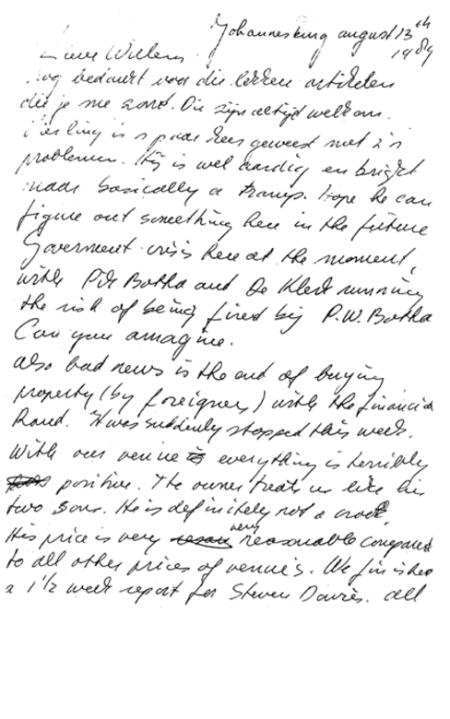 Johannesburg august 13th
1989
Lieve Willem
nog bedankt voor die lekkere artikelen
die je me zond. Die zijn altijd welkom.
is n paar keer geweest met z'n
problemen. Hij is wel aardig en bright
maar basically a tramp. Hope he can
figure out something here in the future
Goverment crisis here at the moment,
with Pik Botha and De Klerk running
the risk of being fired by P.W. Botha
Can you amagine.
also bad news is the end of buying
property (by foreigners) with the financial
Rand. It was suddenly stopped this week.
With our venue is everything is terribly
positive. The owner treats us like his
two sons. He is definitely not a crook.
His price is very very reasonable compared
to all other prices of venue's. We finished
a 1½ week report for Steven Davies. all